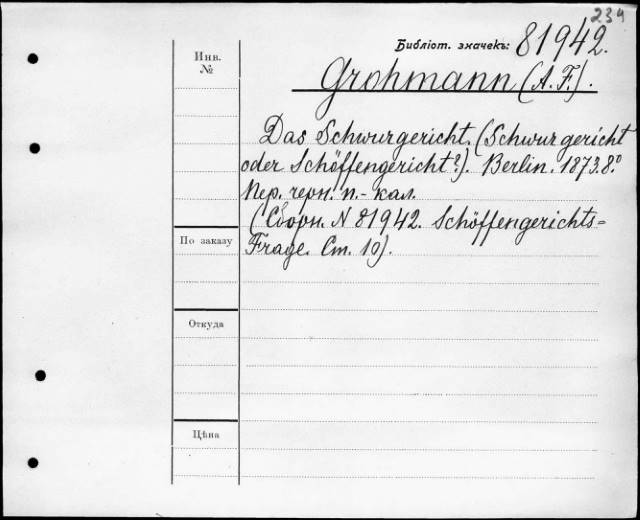 234
Библіот. значекъ: 81942.
Инв.
№
Grohmann (A. F.).
Das Schwurgericht. (Schwurgericht
oder Schöffengericht?). Berlin. 1873. 8°
Пер. черн. п.-кал.
(Сборн. N 81942. Schöffengerichts-
Frage. Ст. 10).
По заказу
Откуда
Цѣна